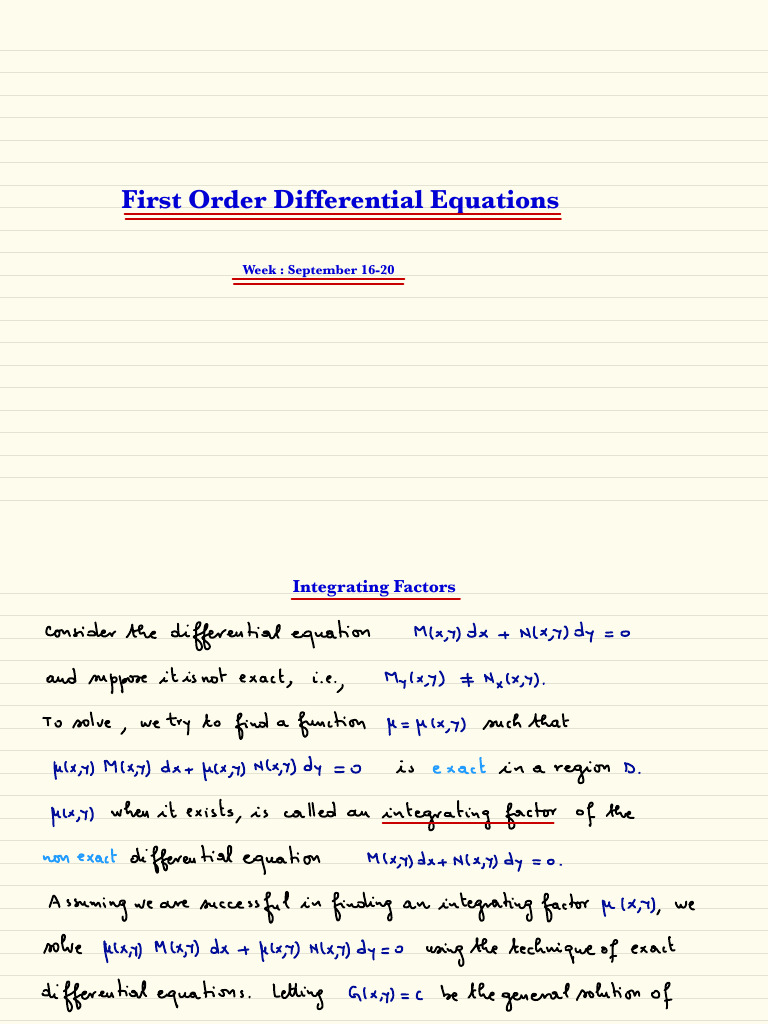 First Order Differential Equations
Week : September 16-20
Integrating Factors
Consider the differential equation M(x,y) dx + N(x,y) dy = 0
and suppose it is not exact, i.e., My(x,y) ≠ Nx(x,y).
To solve, we try to find a function μ = μ(x,y) such that
μ(x,y) M(x,y) dx + μ(x,y) N(x,y) dy = 0 is exact in a region D.
μ(x,y) when it exists, is called an integrating factor of the
non exact differential equation M(x,y) dx + N(x,y) dy = 0.
Assuming we are successful in finding an integrating factor μ(x,y), we
solve μ(x,y) M(x,y) dx + μ(x,y) N(x,y) dy = 0 using the technique of exact
differential equations. Letting G(x,y) = C be the general solution of